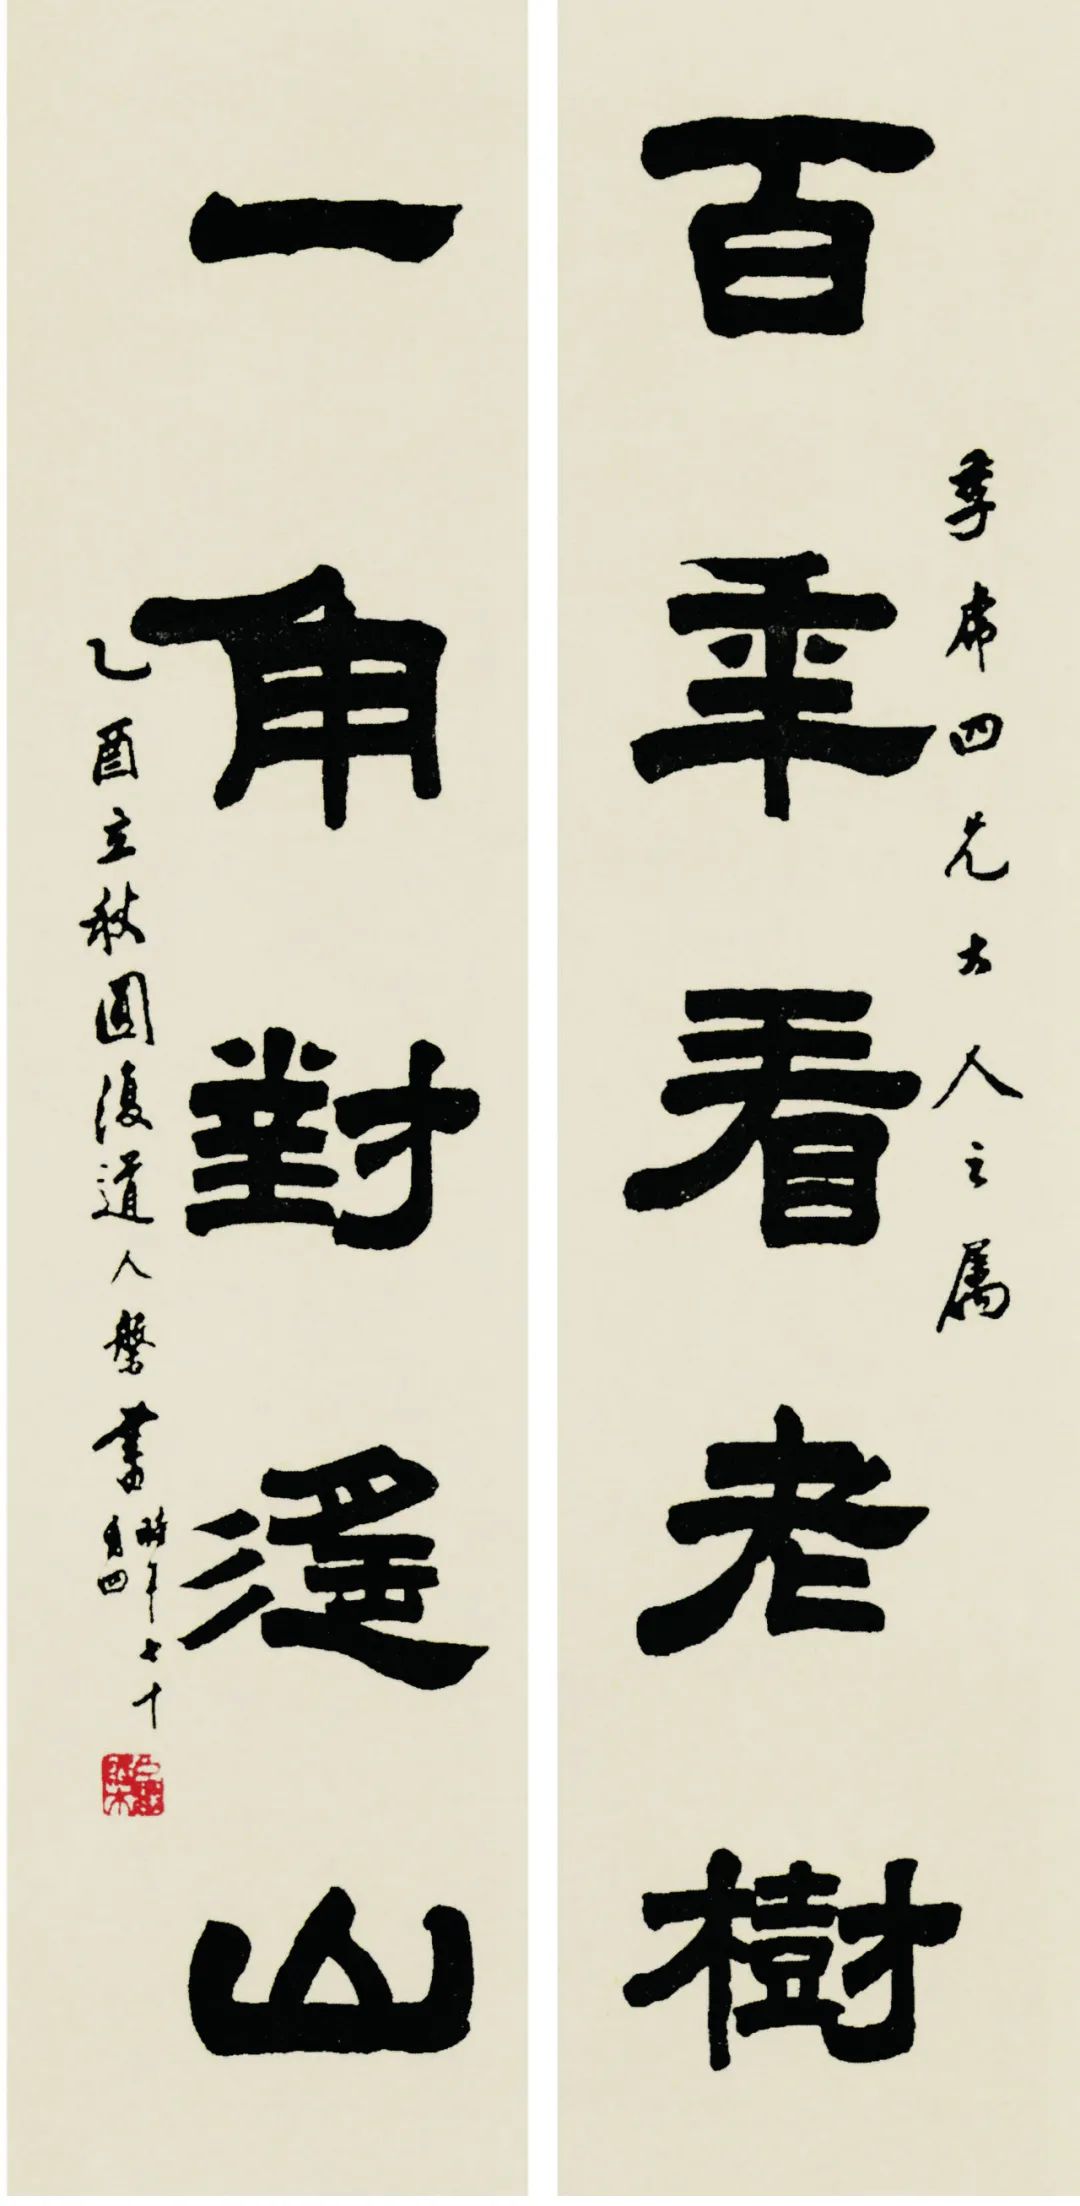 百年看老樹
四兄大人之属
一角對遙山
乙酉立秋圓復道人磐書
時年七十
有四